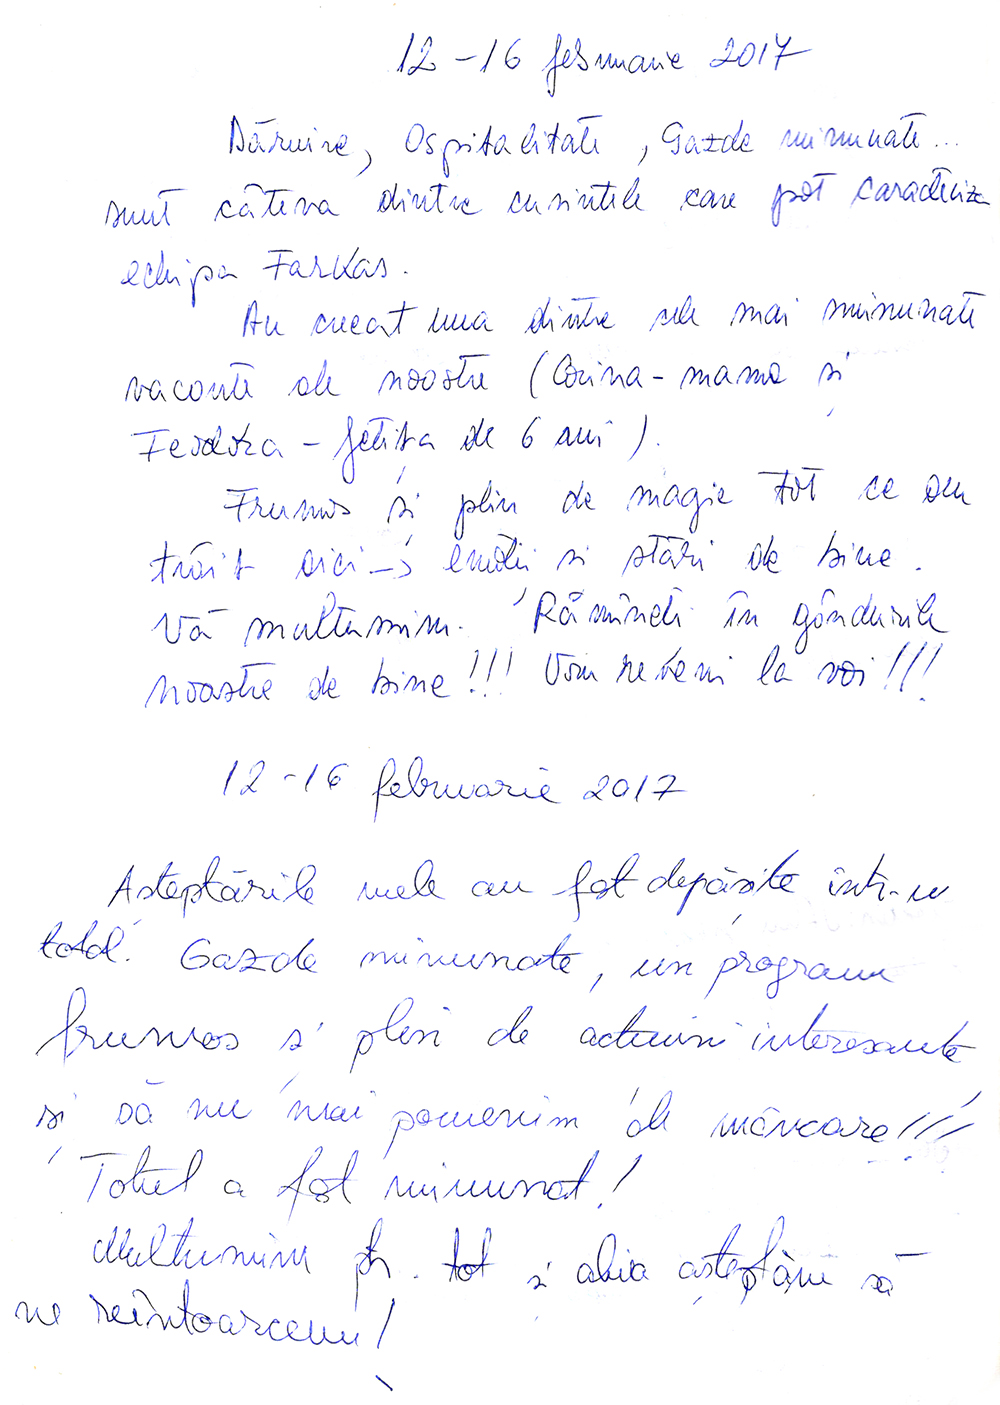 12 - 16 februarie 2017
Dăruire, Ospitalitate, Gazde minunate...
sunt câteva dintre cuvintele care pot caracteriza
echipa Farkas.
Au creat una dintre cele mai minunate
vacanțe ale noastre (Corina - mama și
Feodora - fetița de 6 ani).
Frumos și plin de magie tot ce am
trăit aici -> emoții și stări de bine.
Vă mulțumim. Rămîneți în gândurile
noastre de bine!!! Vom reveni la voi!!!
12 - 16 februarie 2017
Asteptările mele au fost depășite într-u
totol. Gazde minunate, un program
frumos și plin de activități interesante
și să nu mai pomenim de mâncare!!!
Totul a fost minunat!
Multumim ptr. tot și abia aștептăm să
ne reîntoarcem!